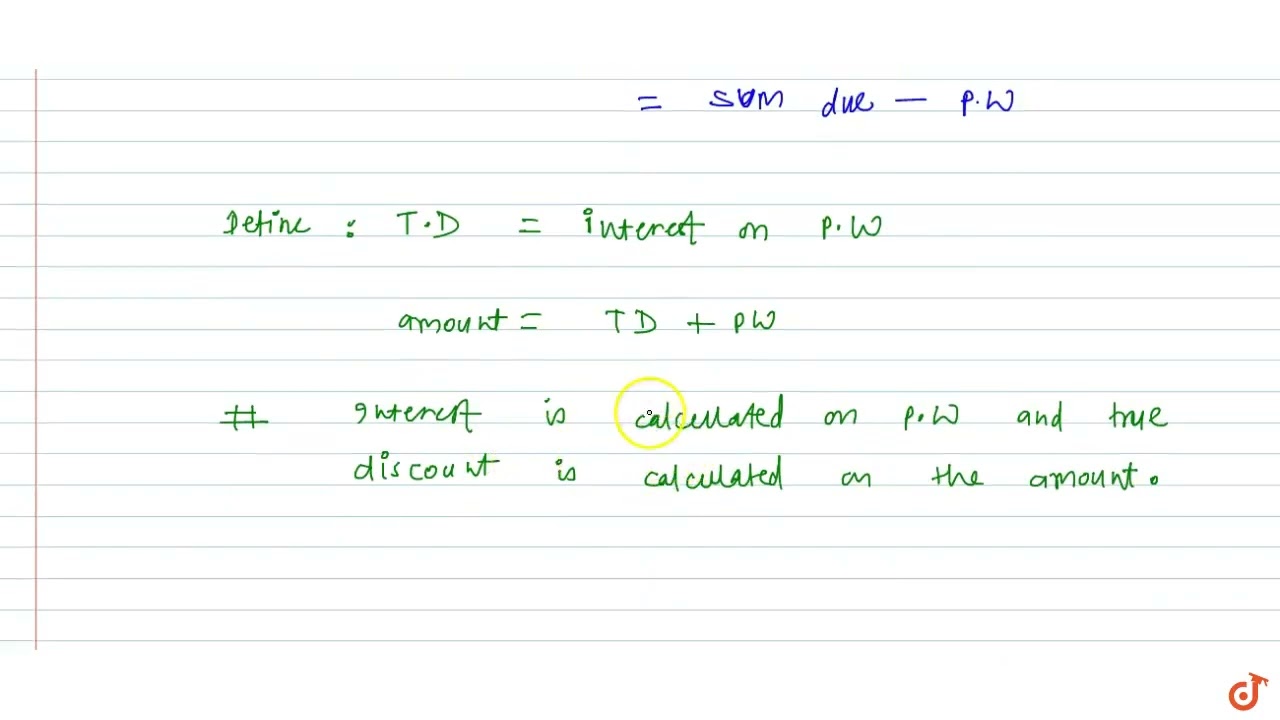 = sum due — P.W
Define : T.D = interest on P.W
amount = TD + PW
# Interest is calculated on P.W and true
discount is calculated on the amount.